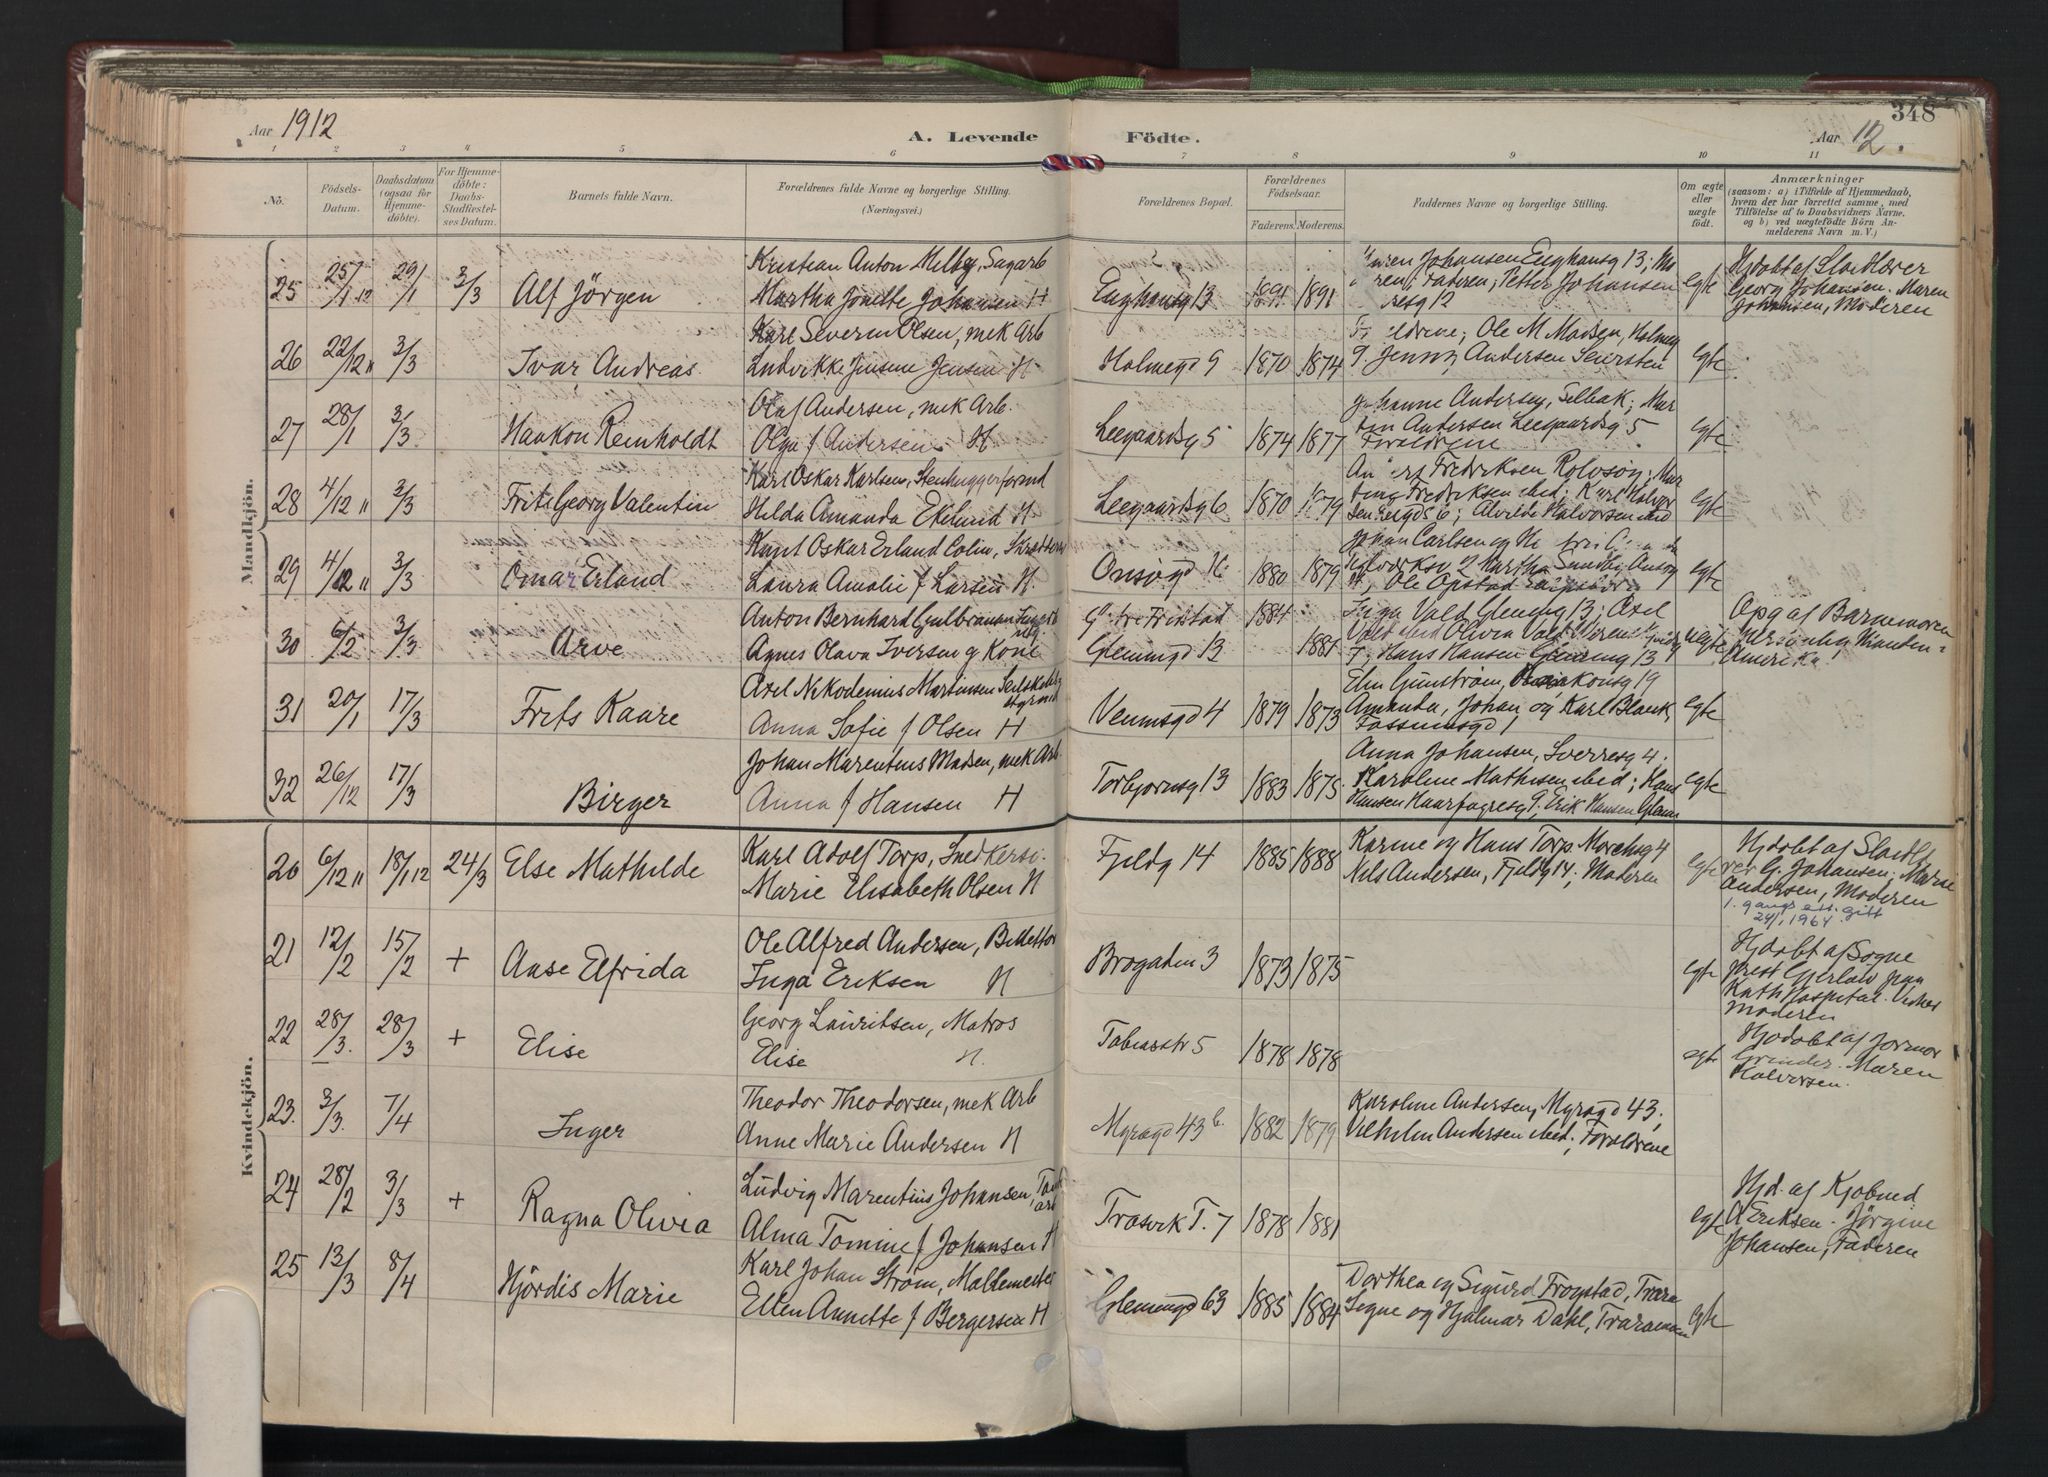 348
Aar 1912
A. Levende
Födte.
Aar 12.
1 2 3 4 5 6 7 8 9 10 11
No.
Födsels-Datum.
Daabsdatum (ogsaa for Hjemmedöbte).
For Hjemmedöbte: Daabs-Stadfæstelses Datum.
Barnets fulde Navn.
Forældrenes fulde Navne og borgerlige Stilling.
(Næringsvei.)
Forældrenes Bopæl.
Forældrenes Födselsaar.
Faderens. Moderens.
Faddernes Navne og borgerlige Stilling.
Om ægte eller uægte födt.
Anmærkninger
(saasom: a) i Tilfælde af Hjemmedaab, hvem der har forrettet samme, med Tilföielse af to Daabsvidners Navne, og b) ved uægtefödte Börn Anmelderens Navn m. V.)
Mandkjön.
25 25/1 12 29/1 3/3 Alf Jörgen
Kristian Anton Melby, Sagarb
Martha Jonette Johansen H
Enghausg 13 1891 1891
Johansen Enghausg 13; Mo
ren; Faderen; Petter Johansen
Egte
Hjdøbt af Slagtlærer
Georg Johansen. Maren
Johansen, Moderen
26 22/12 11 3/3 Ivar Andreas
Karl Severin Olsen, mek Arb
Ludvikke Jensine Jensen H
Holmegd 9 1870 1874
Ole M Madsen, Holmeg
9. Jenny Andersen Seiersten
Egte
27 28/1 3/3 Haakon Reinholdt
Olaf Andersen, mek Arb.
Olga f Andersen H
Leegaardsg 5 1874 1877
Andersen, Selbak; Mar
tin Andersen Leegaardsg 5
Forældrene
Egte
28 4/12 11 3/3 Fritz Georg Valentin
Karl Oskar Karlsen, Stenhuggerformd
Hilda Amanda Ekelund H
Leegaardsg 6 1870 1879
Fredriksen Rolvsøy; Mar
Fredriksen ibid; Karl Halvor
sen 6; Alvilde Halvorsen ibid
Egte
29 4/12 11 3/3 Omar Erland
Knut Oskar Erland Colin, Skrædder
Laura Amalie f Larsen H.
Onsøgd 16 1880 1879
Johan Carlsen og
2 Martha Sundby Onsøg
Ole Opstad
Egte
30 6/2 3/3 Arve
Anton Bernhard Gulbransen
Agnes Olava Iversen g Kone
Fridstad 1884
Glemmgd 13 1881
Inga Vald Glemg 13; Axel
Vald ibid Olivia Vald
7, Hans Hansen Glemmg 13
Uegte
Opg af Barnemoren
Manden i
Amerika
31 20/1 17/3 Frits Kaare
Axel Nikodemius Martinsen
Anna Sofie f Olsen H
Venmsgd 4 1879 1873
Elin Gunstrøm, 19
Amanda, Johan og Karl Blanck,
Fossumsgd 1
Egte
32 26/12 17/3 Birger
Johan Marentius Madsen, mek Arb.
Anna f Hansen H
Torbjørnsg 13 1883 1875
Anna Johansen, Sverresg 4.
Karoline Mathisen ibid; Hans
Hansen Haarfagresg 9; Erik Hansen Glemm
Egte
Kvindekjön.
20 6/12 11 18/1 12 24/3 Else Mathilde
Karl Adolf Torp, Snedkersv.
Marie Elisabeth Olsen H
Fjeldg 14 1885 1888
Karine og Hans Torp Mosehsg 4
Nils Andersen, Fjeldg 14; Moderen
Egte
Hjdøbt af Slagtlæ
rer G. Johansen; Marie
Andersen, Moderen
1. gangs att. gitt
24/1, 1964.
21 12/2 15/2 + Aase Elfrida
Ole Alfred Andersen, Billettør
Inga Eriksen H
Brogaden 3 1873 1875
egte
Hjdøbt af Sogne
prest Gjerløw paa
Kath Hospital.
Moderen
22 28/3. 28/3 + Elise
Georg Lauritsen, Matros
Elise H.
Tobiasstr 5 1878 1878
egte
Hjdøbt af Jormor
Grinder. Maren
Halvorsen.
23. 3/3. 7/4 Inger
Theodor Theodorsen, mek Arb
Anne Marie Andersen H
Myragd 43 b. 1882 1879
Karoline Andersen, Myragd 43;
Vilhelm Andersen ibid; Forældrene
24 28/2 3/3 + Ragna Olivia
Ludvig Marentius Johansen,
Alma Tomine f Johansen H
Trosvik T. 7 1878 1881
egte
Hjd. af Kjøbmd
A Eriksen. Jørgine
Johansen, Faderen
25 13/3 8/4 Hjördis Marie
Karl Johan Strøm, Mallemester
Ellen Annette f Bergersen H
Glemmgd 63 1885 1884
Dorthea og Sigurd Frogstad, Trara
Signe og Hjalmar Dahl, Traramoen
Egte